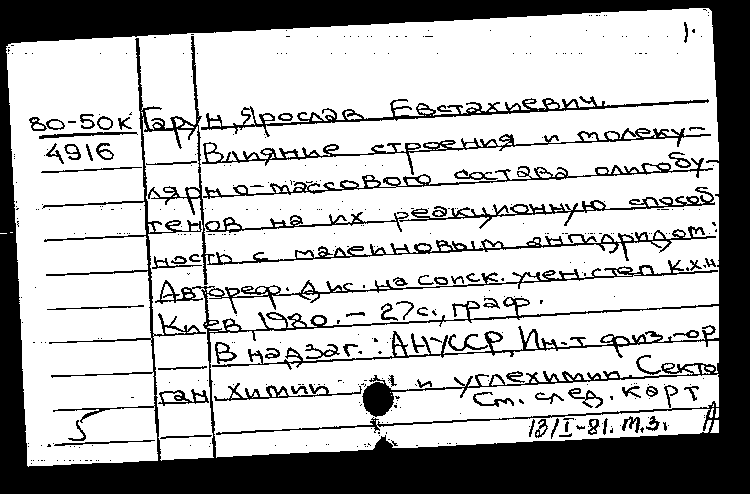 1.
80-50к Гарун, Ярослав Евстахиевич.
4916 Влияние строения и молеку-
лярно-массового состава олигобу-
тенов на их реакционную способ-
ность с малеиновым ангидридом:
Автореф. дис. на соиск. учен. степ. к.х.н.
Киев, 1980. - 27с., граф.
В надзаг.: АНУССР, Ин-т физ.-ор
ган химии и углехимии. Секто
См. след. карт
5 13/I-81. м.з.